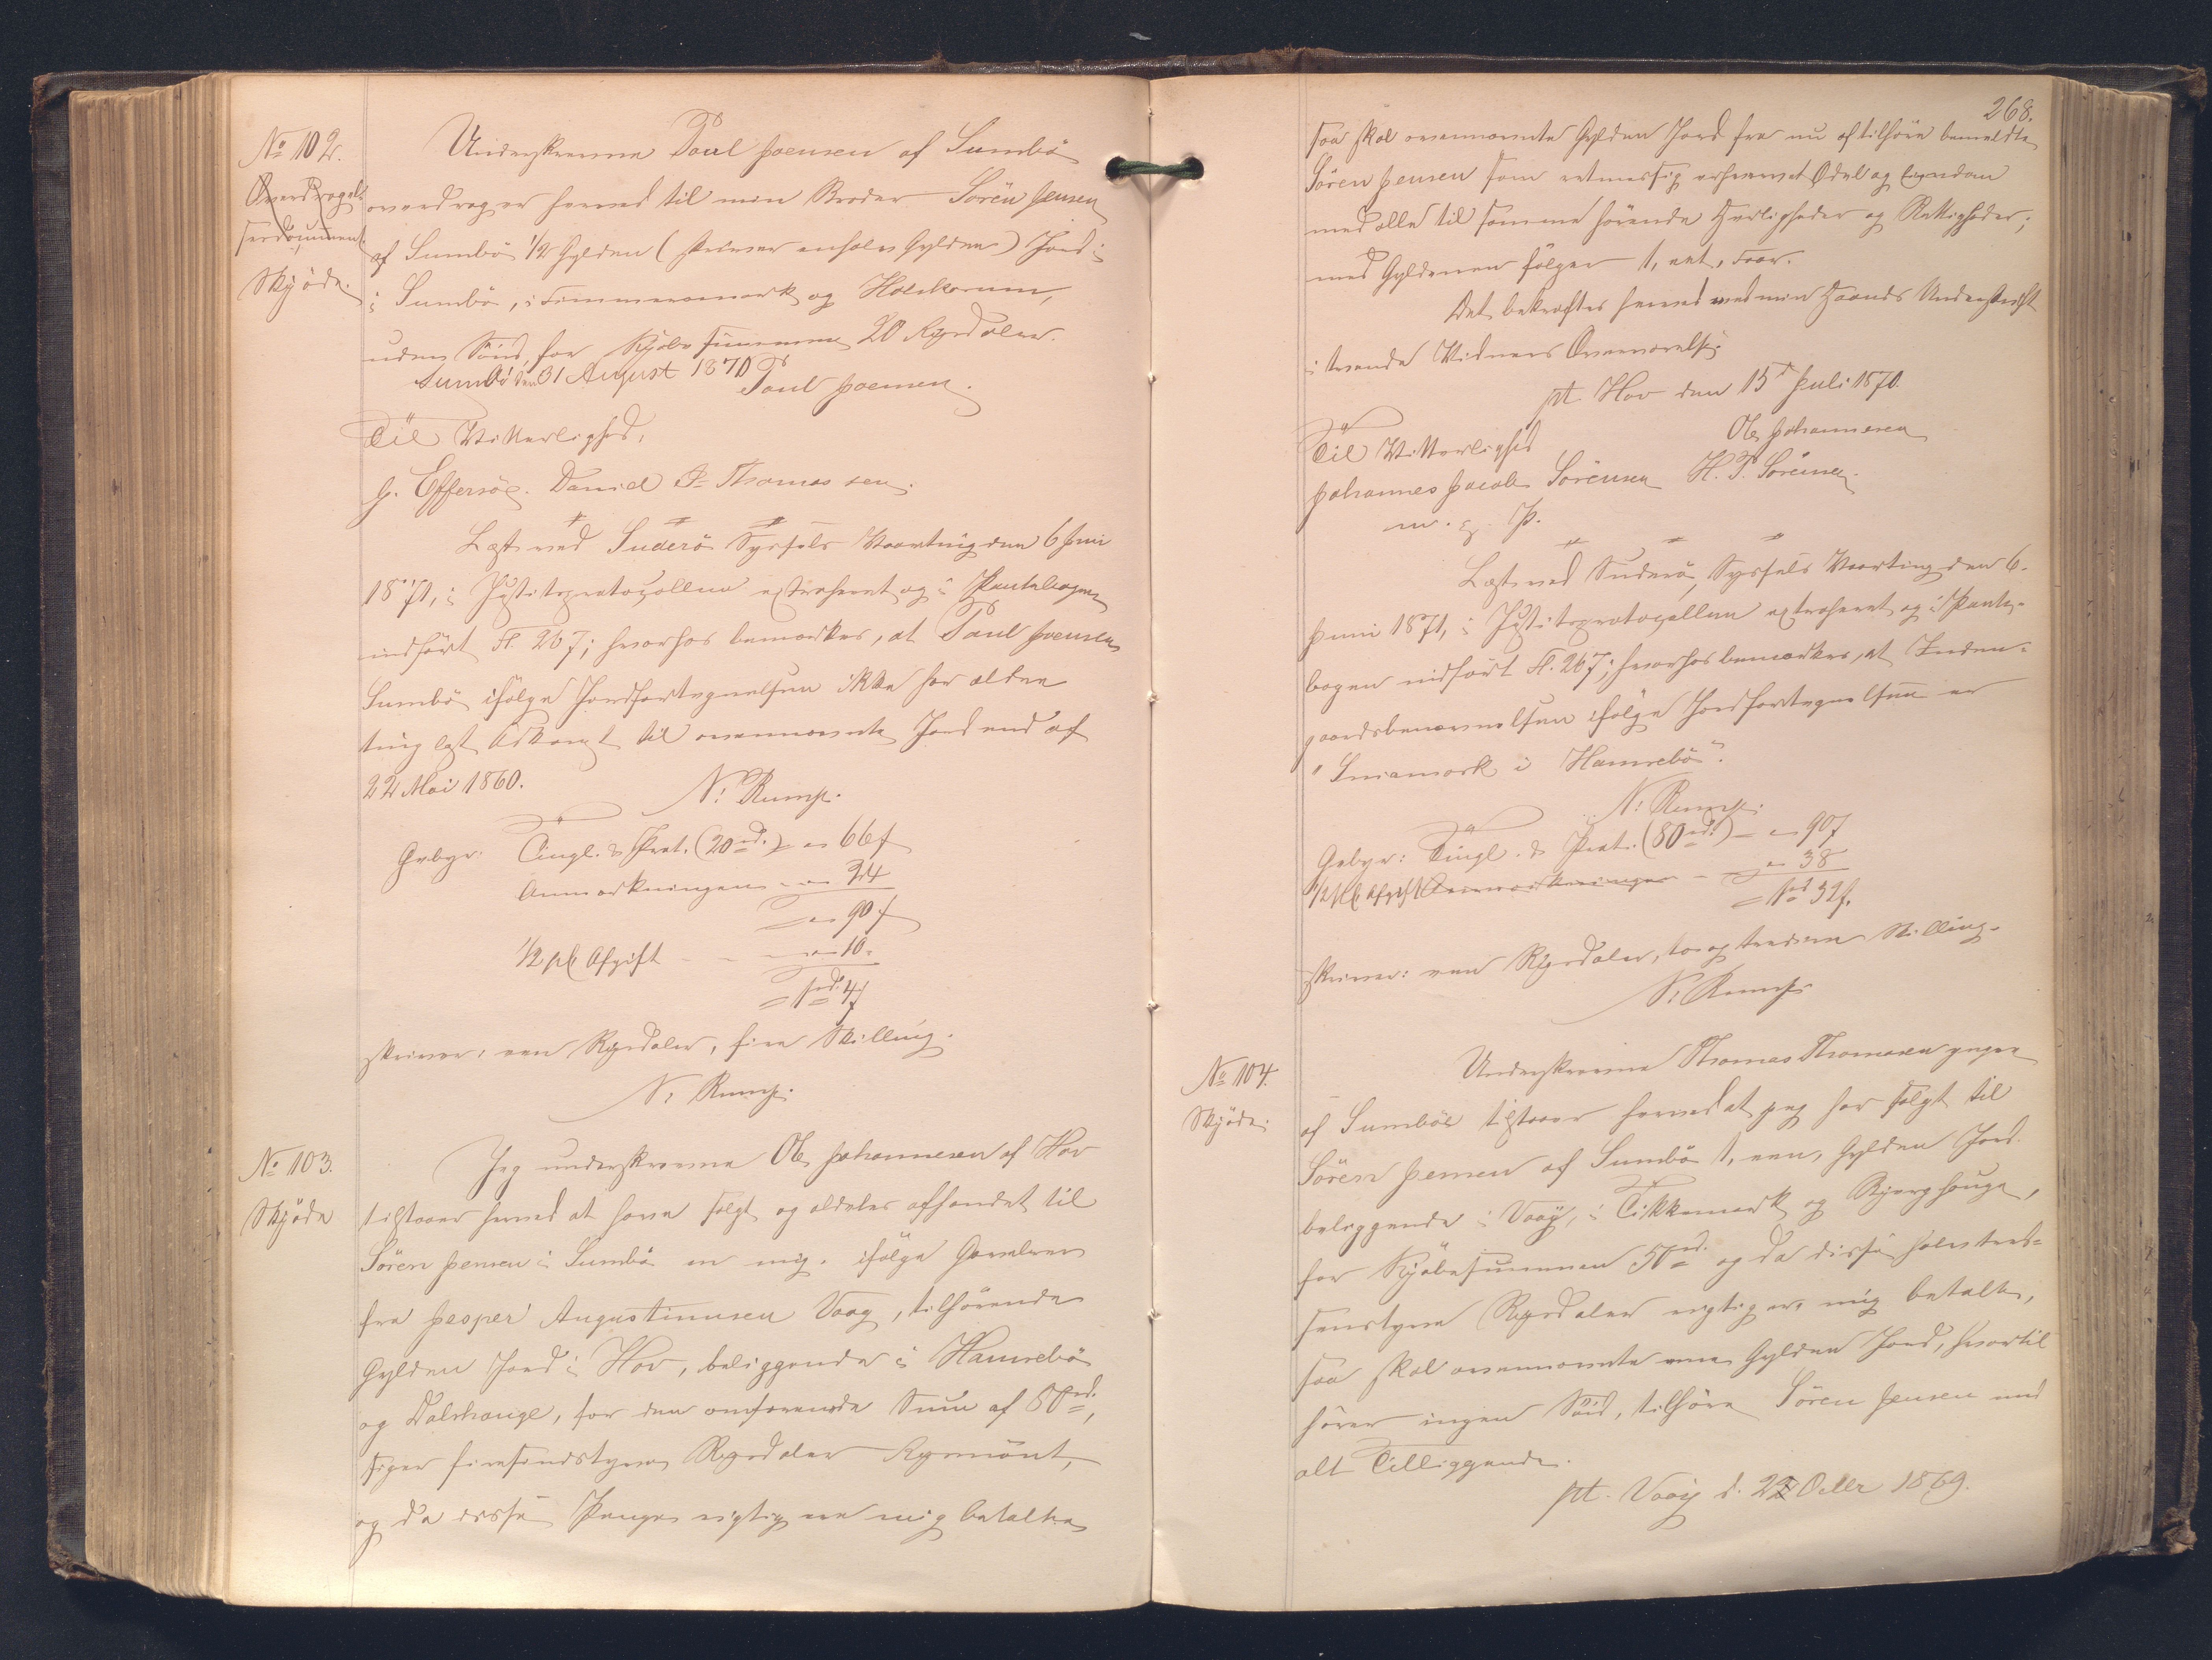 No 102.
Overdragel-
sesdocument
Skjöde.
Underskrevne Poul Joensen af Sumbö
overdrager herved til min Broder Sören Jensen
af Sumbö 1/2 Gylden (skriver en halv Gylden) Jord i
i Sumbö, i Timmermark og
uden Söid, for Kjøbesummen 20 Rigsdaler.
Sumbö den 31 August 1870 Poul Joensen.
Til Vitterlighed,
G. Effersöe. Daniel P. Thomassen.
Læst ved Suderö Syssels Vaarting den 6 Juni
1871, i Justitsprotocollen extraheret og i Pantebogen
indfört Fl. 267; hvorhos bemærkes, at Poul Joensen
Sumbö ifölge Jordfortegnelsen ikke har ældre
tinglæst Adkomst til ovennævnte Jord end af
22 Mai 1860.
N: Rump.
Gebyr: Tingl. & Prot. (20 rd.) = " 66 f
Anmærkningen - " 24
= " 90 f
1/2 pCt Afgift - - " 10 "
= 1 rd. 4 f
skriver: een Rigsdaler, fire Skilling.
N: Rump.
No 103.
Skjöde
Jeg underskrevne Ole Johannesen af Hov
tilstaaer herved at have solgt og aldeles afhændet til
Sören Jensen i Sumbö en mig, ifölge Gavebrev
fra Jesper Augustinusen Vaag, tilhörende
Gylden Jord i Hov, beliggende i Hamrebö
og Dalshauge, for den omforenede Sum af 80 rd.,
siger firesindstyve Rigsdaler Rigsmönt,
og da disse Penge rigtig ere mig betalte
268.
saa skal ovennævnte Gylden Jord fra nu af tilhöre bemeldte
Sören Jensen som retmæssig erhvervet Odel og Eiendom
med alle til samme hörende Herligheder og Rettigheder;
med Gyldenen fölger 1, eet, Faar.
Det bekræftes herved med min Haands Underskrift
i tvende Vidners Overværelse.
pt. Hov den 15de Juli 1870.
Ole Johannesen
Til Vitterlighed
Johannes Jacob Sörensen H. P. Sörensen.
m. f. P.
Læst ved Suderö Syssels Vaarting den 6.
Juni 1871, i Justitsprotocollen extraheret og i Pante-
bogen indfört Fl. 267; hvorhos bemærkes, at Inden-
gaardsbenævnelsen ifölge Jordfortegnelsen er
" Inniamark i Hamrebö".
N: Rump.
Gebyr: Tingl. & Prot. (80 rd.) - " 90 f
1/2 pCt Afgift Anmærkningen - - " 38
= 1 rd 32 f.
skriver: een Rigsdaler, to og tredive Skilling.
N: Rump
No 104.
Skjöde.
Underskrevne Thomas Thomasen yngre
af Sumböe tilstaaer herved at jeg har solgt til
Sören Jensen af Sumbö 1, een, Gylden Jord
beliggende i Vaag, i Tikkemark og Bjerghauge,
for Kjöbesummen 50 rd. og da disse halvtred-
sindstyve Rigsdaler rigtig er mig betalte,
saa skal ovennævnte een Gylden Jord, hvortil
hörer ingen Söid, tilhöre Sören Jensen med
alt Tilliggende.
pt. Vaag d. 22 Octbr 1869.